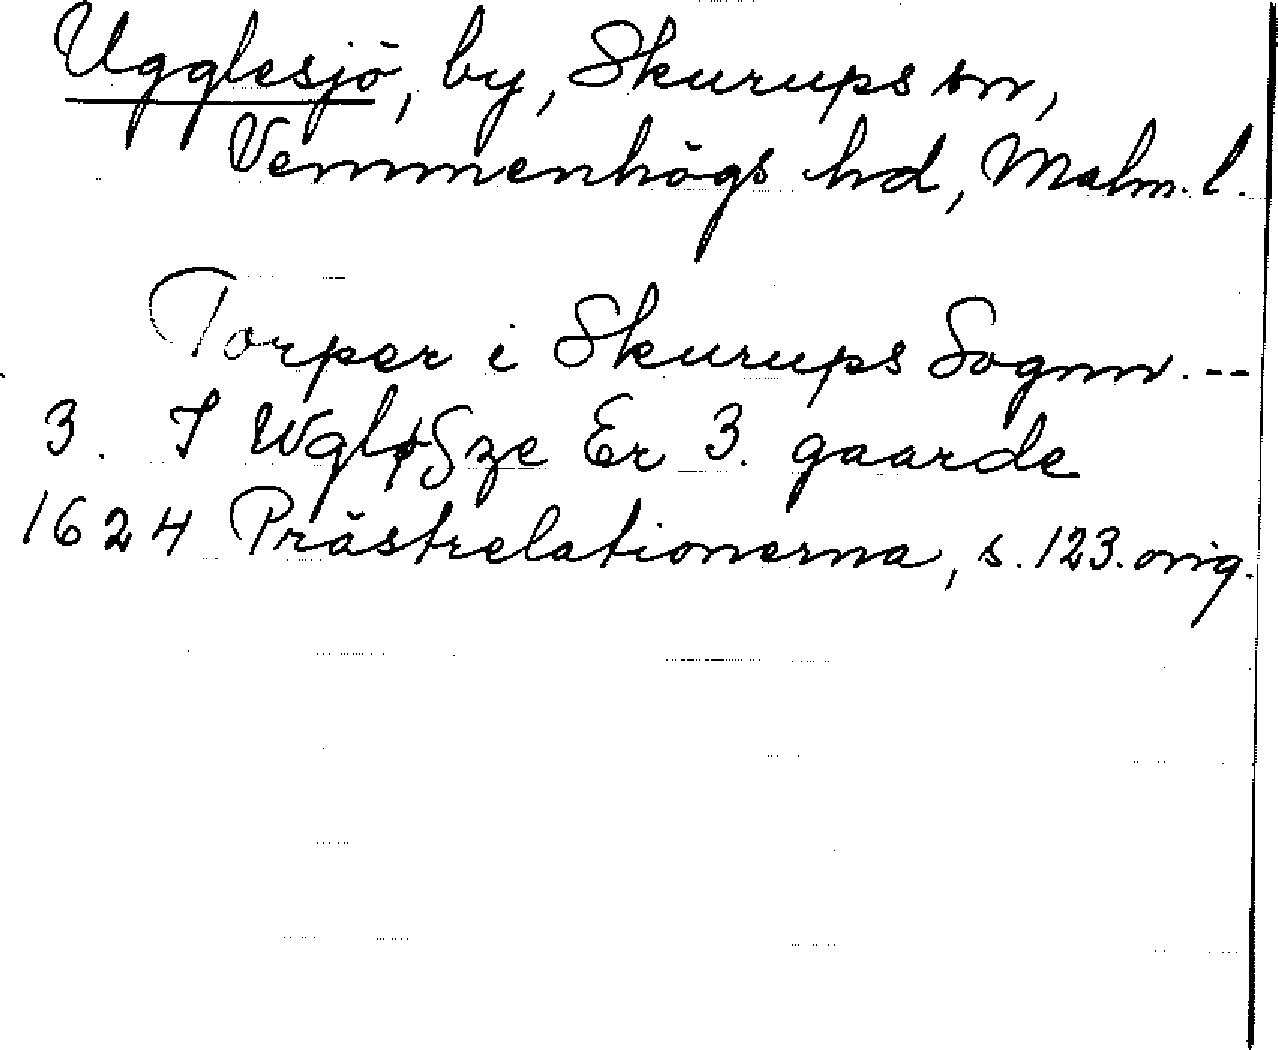 Ugglesjö, by, Skurups sn,
Vemmenhögs hd, Malm. l.
Torper i Skurups Sognn. --
3. I Wgløßze Er 3. gaarde
1624 Prästrelationerna, s. 123. orig.